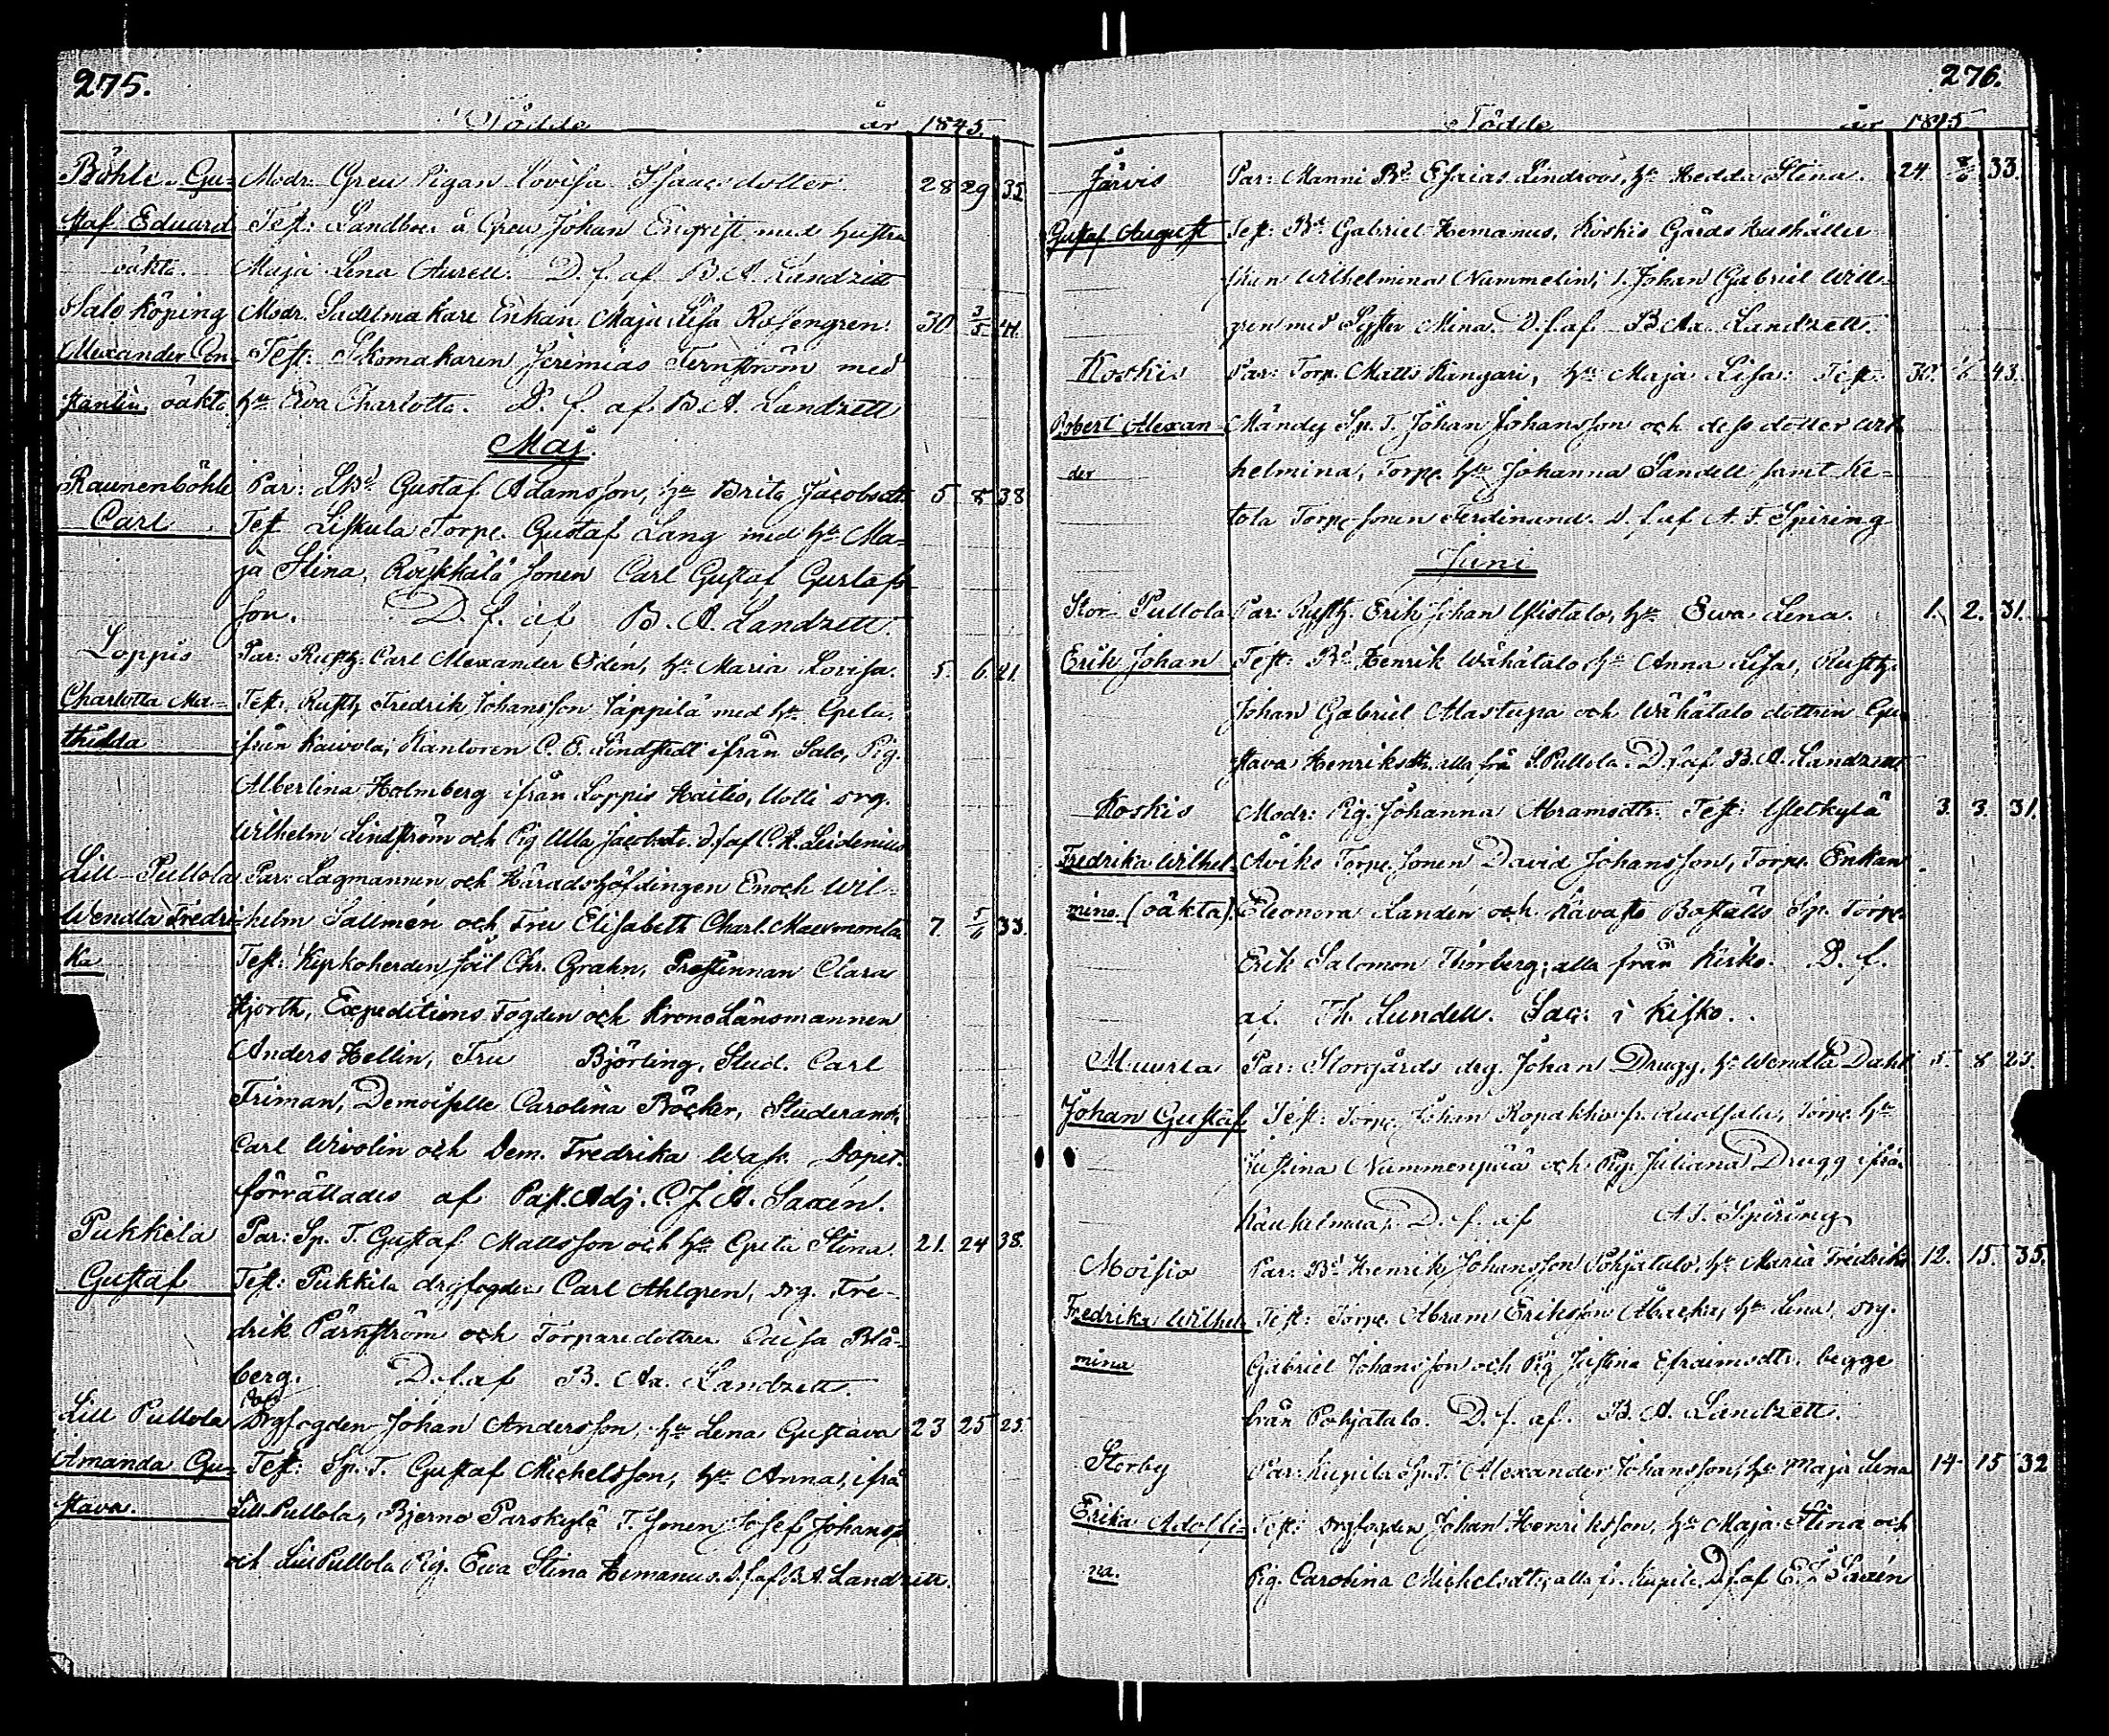 275.
Födde år 1845.
Böhle Gu- Modr. Greu Pigan Lovisa Isaacsdotter 28 29 35
staf Eduard Test: Landbon å Greu Johan Engvist med hustru
oäkta. Maja Lena Aurell. D. f. af B. A. Landzett
Salo Köping Modr. Sadelmakare Enkan Maja Lisa Rosengren. 30 3/5 41.
Alexander Con- Test: Skomakaren Jeremias Fernström med
stantin oäkta hu Ewa Charlotta. D. f. af. B. A. Landzett
Maj.
Raunenböhle Par: Gustaf Adamsson, hu Brita Jacobsdtr 5 8 38
Carl Test Leskula Torp. Gustaf Lang med hu Ma-
ja Stina, Räykkälä sonen Carl Gustaf Gustafs-
son. D. f. af B. A. Landzett.
Loppis Par: Rusth. Carl Alexander Odén, hu Maria Lovisa. 5. 6. 21.
Charlotta Ma- Test: Rusth Fredrik Johansson Jäppilä med hu Greta,
thilda ifrån Kaivola, Kantoren C. E. Lindstedt ifrån Salo, Pig.
Albertina Holmberg ifrån Loppis Haitis, Uotti drg.
Wilhelm Lindström och Pig Ulla Jacobsdtr. D. f af C. A. Leidenius
Lill-Pullola Par: Lagmannen och Häradshöfdingen Enoch Wil-
Wendla Fredri- helm Sallmén och Fru Elisabeth Charl. 7. 5/6 33.
ka Test: Kyrkoherden Joël Chr. Grahn, Prostinnan Clara
Hjorth, Expeditions Fogden och Krono Länsmannen
Anders Hellin, Fru Björling, Stud. Carl
Friman, Demoiselle Carolina Böcker, Studerande,
Carl Wivolin och Dem. Fredrika Wass. Dopet.
förrättades af Past. Adj. C. J. A. Saxén.
Pukkila Par: Sp. T. Gustaf Mattsson och hu Greta Stina 21. 24 38.
Gustaf Test: Pukkila drgfogden Carl Ahlgren, drg. Fre-
drik Pärnström och Torparedottren Caisa Blå-
berg. D. f. af B. A. Landzett.
Lill Pullola Drgfogden Johan Andersson, hu Lena Gustava 23 25 25.
Amanda Gu- Test: Sp. T. Gustaf Michelsson, hu Anna, ifrån
stava. Lill-Pullola, Bjerno Parskylä T. sonen Josef Johanss.
och Lill Pullola Pig. Ewa Stina Hemanus. D. f af B. A. Landzett.
276.
Födde år 1845
Järvis Par: Manni Bd. Esaias Lindroos, hu Hedda Stina. 24. 33.
Gustaf August Test: Bd. Gabriel Hemanus, Koskis Gårds Hushåller-
skan Wilhelmina Nummelin, Johan Gabriel Will-
gren med Syster Mina. D. f. af B. A. Landzett.
Koskis Par: Torp. Matts Kangari, hu Maja Lisa: Test. 30. 43.
Robert Alexan- Sp. T. Johan Johansson och dess dotter Wil-
der helmina, Torp. hu Johanna Sandell samt Ke-
tola Torp. sonen Ferdinand. D. f. af A. F. Spiring
Juni
Stor-Pullola Par: Rusth. Erik Johan Ylistalo, hu Ewa Lena. 1. 2. 31.
Erik Johan Test: Bd. Henrik Wähätalo hu Anna Lisa, Rusth.
Johan Gabriel Alastupa och Wähätalo dottren Gu-
stava Henriksdtr. alla frå S. Pullola. D. f af B. A. Landzett
Koskis Modr: Pig. Johanna Abramsdtr. Test: 3. 3. 31.
Fredrika Wilhel- Torp. sonen David Johansson, Torp. Enkan
mina. (oäkta). Eleonora Landen och Boställs Sp. Torp.
Erik Salomon Thorberg; alla från Kisko. D. f.
af. Th. Sundell. Sac: i Kisko.
Muurla Par: Storgårds drg. Johan Drugg, h. Wendla Dahl 5. 8 23.
Johan Gustaf Test: Torp. Johan Ropakko Torp. hu
Justina Nummenpää och Pig. Juliana Drugg ifrån
D. f. af A. F. Spiring
Moisio Par: Bd. Henrik Johansson Pohjatalo, hu Maria Fredrika 12. 15. 35.
Fredrika Wilhel- Test: Torp. Abram Eriksson hu Lena, drg.
mina Gabriel Johansson och Pig Justina Efraimsdtr. begge
från Pohjatalo. D. f. af. B. A. Landzett.
Storby Par: Kupila Sp. T. Alexander Johansson, hu Maja Lena 14 15 32
Erika Adolfi- Test: Drgfogden Johan Henriksson, hu Maja Stina och
na. Pig. Carolina Michelsdtr. alla fr. Kupila. D. f af Saxén